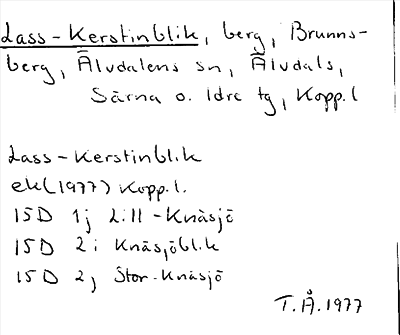 Lass-Kerstinblik, berg, Brunns-
berg, Älvdalens sn, Älvdals,
Särna o. Idre tg, Kopp.l
Lass-Kerstinblik
ek(1977) Kopp.l.
15D 1j Lill-Knäsjö
15D 2i Knäsjöblik
15D 2j Stor-Knäsjö
T.Å.1977